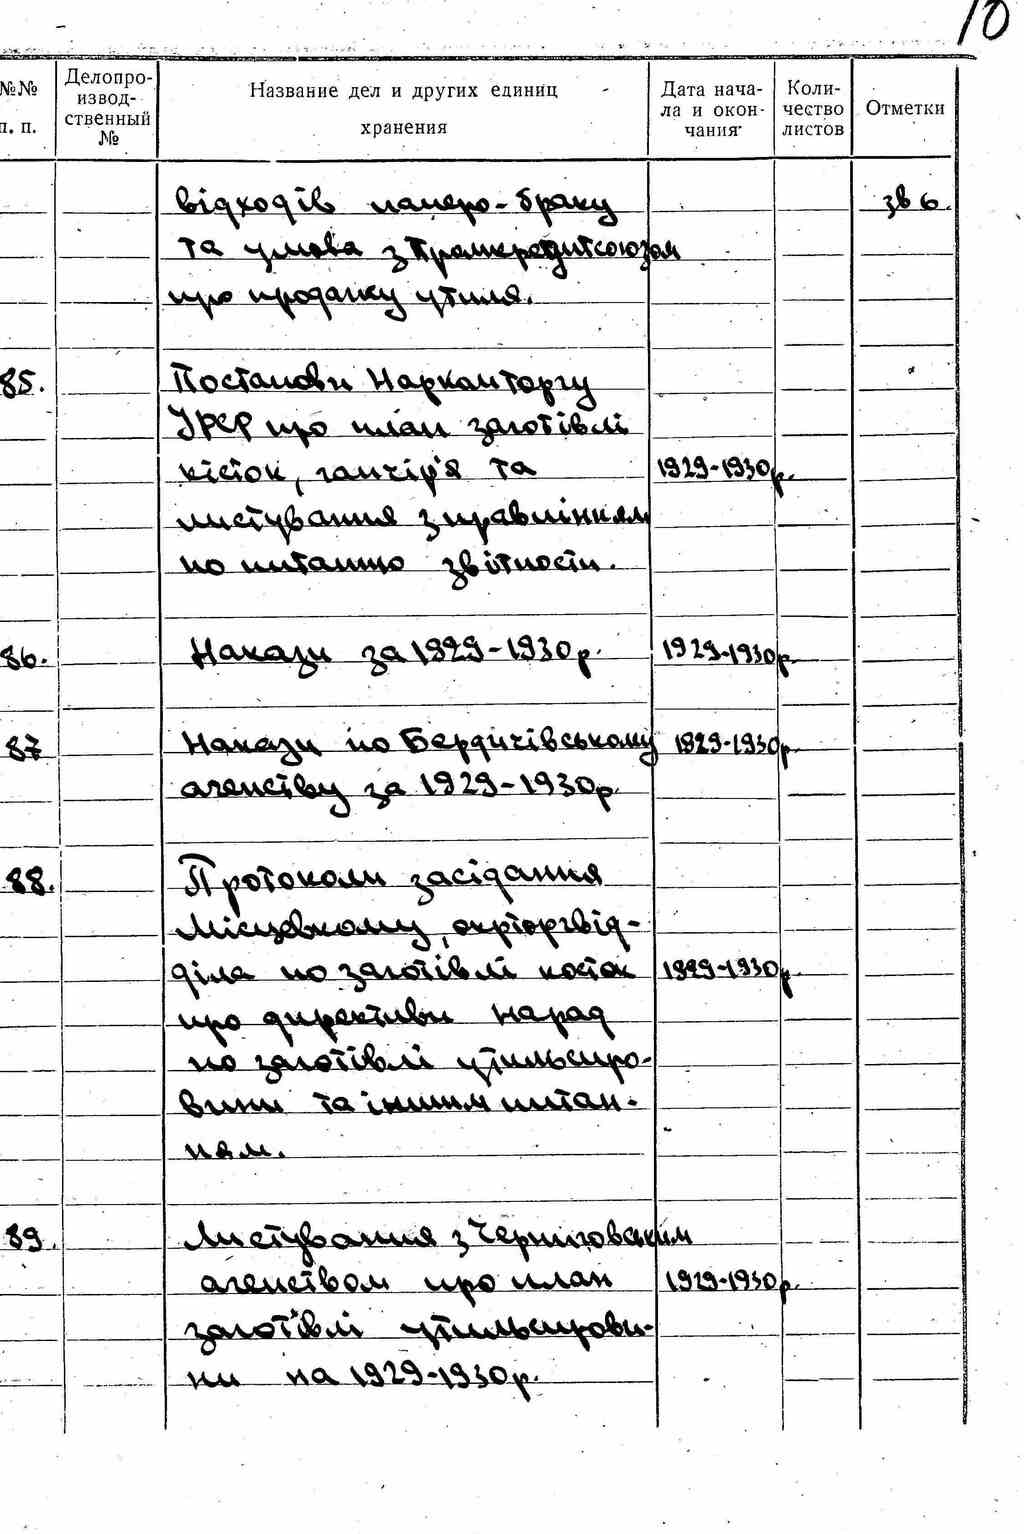 10
№№ п. п.
Делопроизводственный №
Название дел и других единиц хранения
Дата начала и окончания
Количество листов
Отметки
відходів паперо-браку
та умова з Промкредитсоюзом
про продажу утиля.
85. Постанови Наркомторгу
УРСР про план заготівлі
кісток, ганчір'я та 1929-1930р.
листування з правлінням
по питанню звітности.
86. Накази за 1929-1930р. 1929-1930р.
87 Накази по Бердичівському 1929-1930р.
агенству за 1929-1930р.
88. Протоколи засідання
Місцевкому, окрторгвід-
діла по заготівлі косток 1929-1930р.
про директиви нарад
по заготівлі утильсиро-
вини та іншим питан-
ням.
89. Листування з Черниговським
агенством про план 1929-1930р.
заготівлі утильсирови-
ни на 1929-1930р.